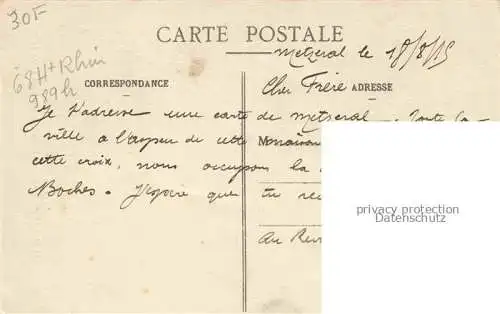 30F
CARTE POSTALE
Metzeral le 18/8/15
68 Ht Rhin
989h
CORRESPONDANCE
Cher Frère
ADRESSE
Je t'adresse une carte de Metzeral. Toute la
ville a l'aspect de cette
cette croix, nous occupons la
Boches. J'espère que tu
privacy protection
Au Rev